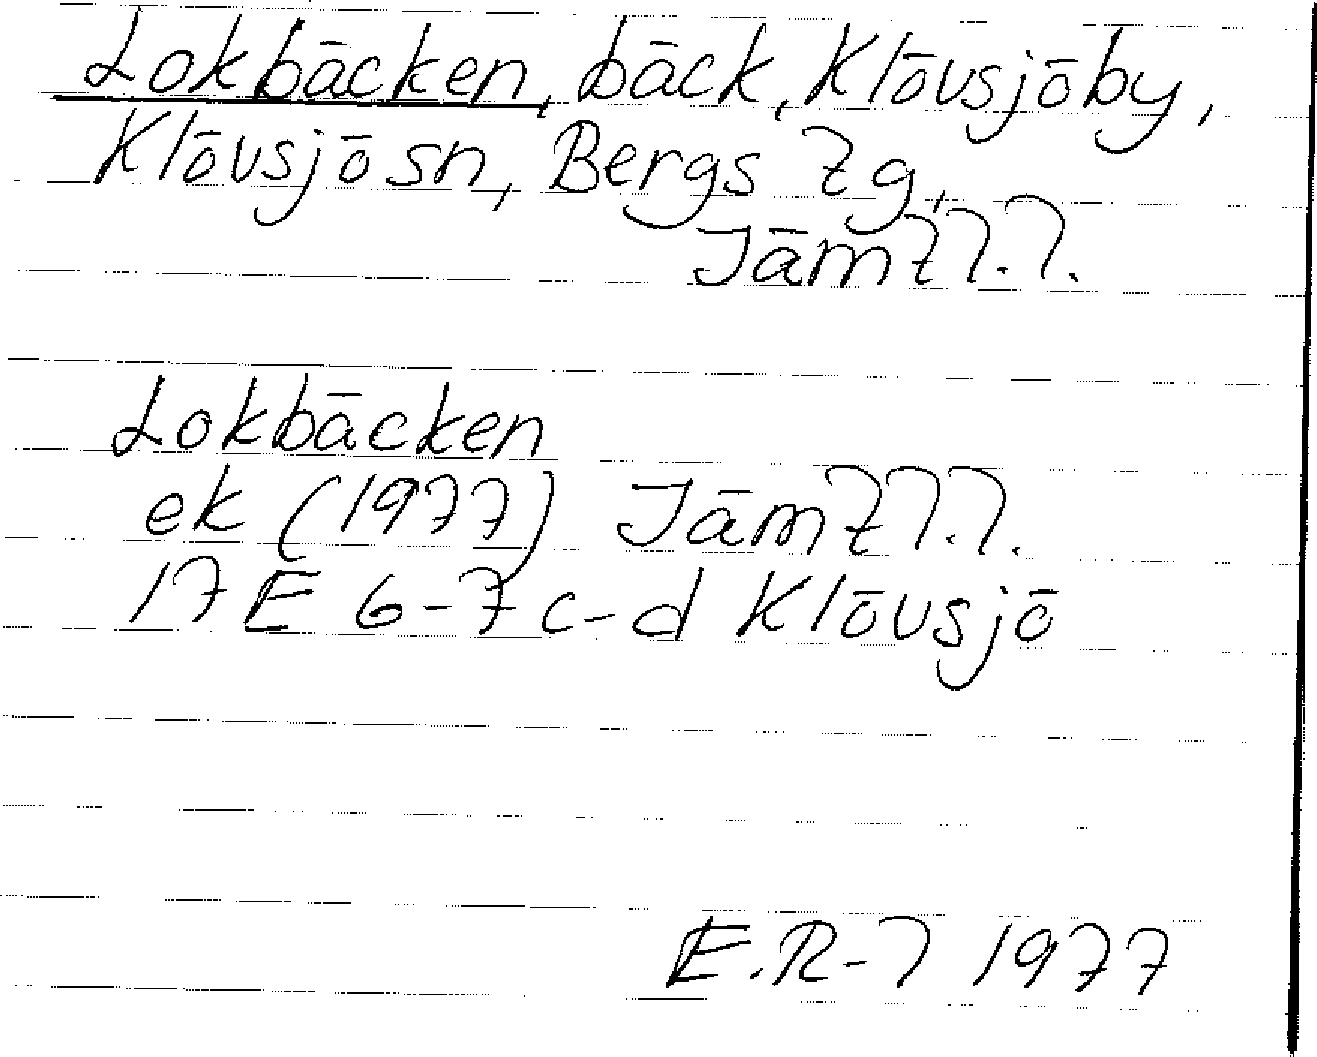 Lokbäcken, bäck, Klövsjöby,
Klövsjö sn, Bergs tg,
Jämtl.l.
Lokbäcken
ek (1977) Jämtl.l.
17 E 6-7 c-d Klövsjö
E.R-l 1977